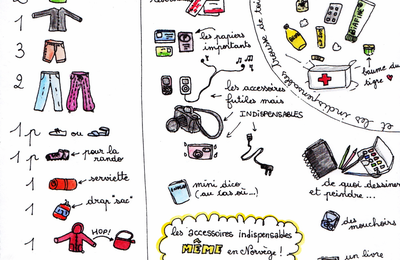 2
1
3
2
1 p ou
1 p pour la
rando
1 serviette
1 drap "sac"
1 HOP!
les papiers
importants
les accessoires
futiles mais
INDISPENSABLES
mini dico
(au cas où...)
les accessoires indispensables
MÊME en Norvège !
et les indispensables
trousse de
baume du
tigre
de quoi dessiner
et peindre...
des
mouchoirs
un livre